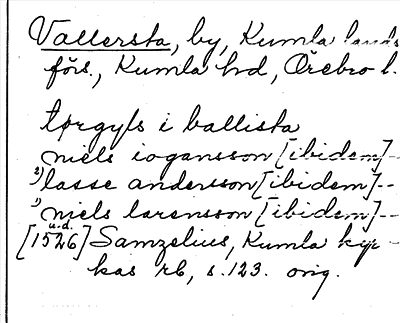 Vallersta, by, Kumla lands
förs., Kumla hd, Örebro l.
torgyls i ballista
niels iogansson [ibidem]--
2) lasse andersson [ibidem]--
1) njels larensson [ibidem]--
u.d.
[1526] Samzelius, Kumla kyr-
kas rb, s. 123. orig.